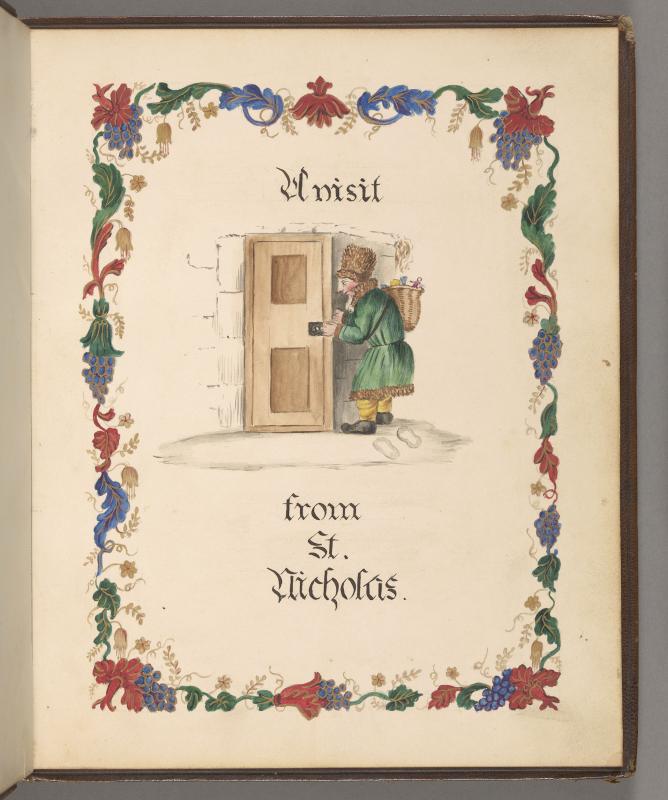 A visit
from
St.
Nicholas.